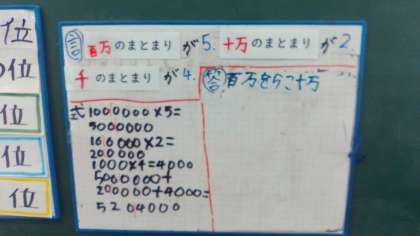 位
の位
位
位
位
言 百万のまとまりが5. 十万のまとまりが2.
千のまとまりが4.
答 百万を5こ十万
式 1000000×5=
5000000
100000×2=
200000
1000×4=4000
5000000+
200000+4000=
5204000